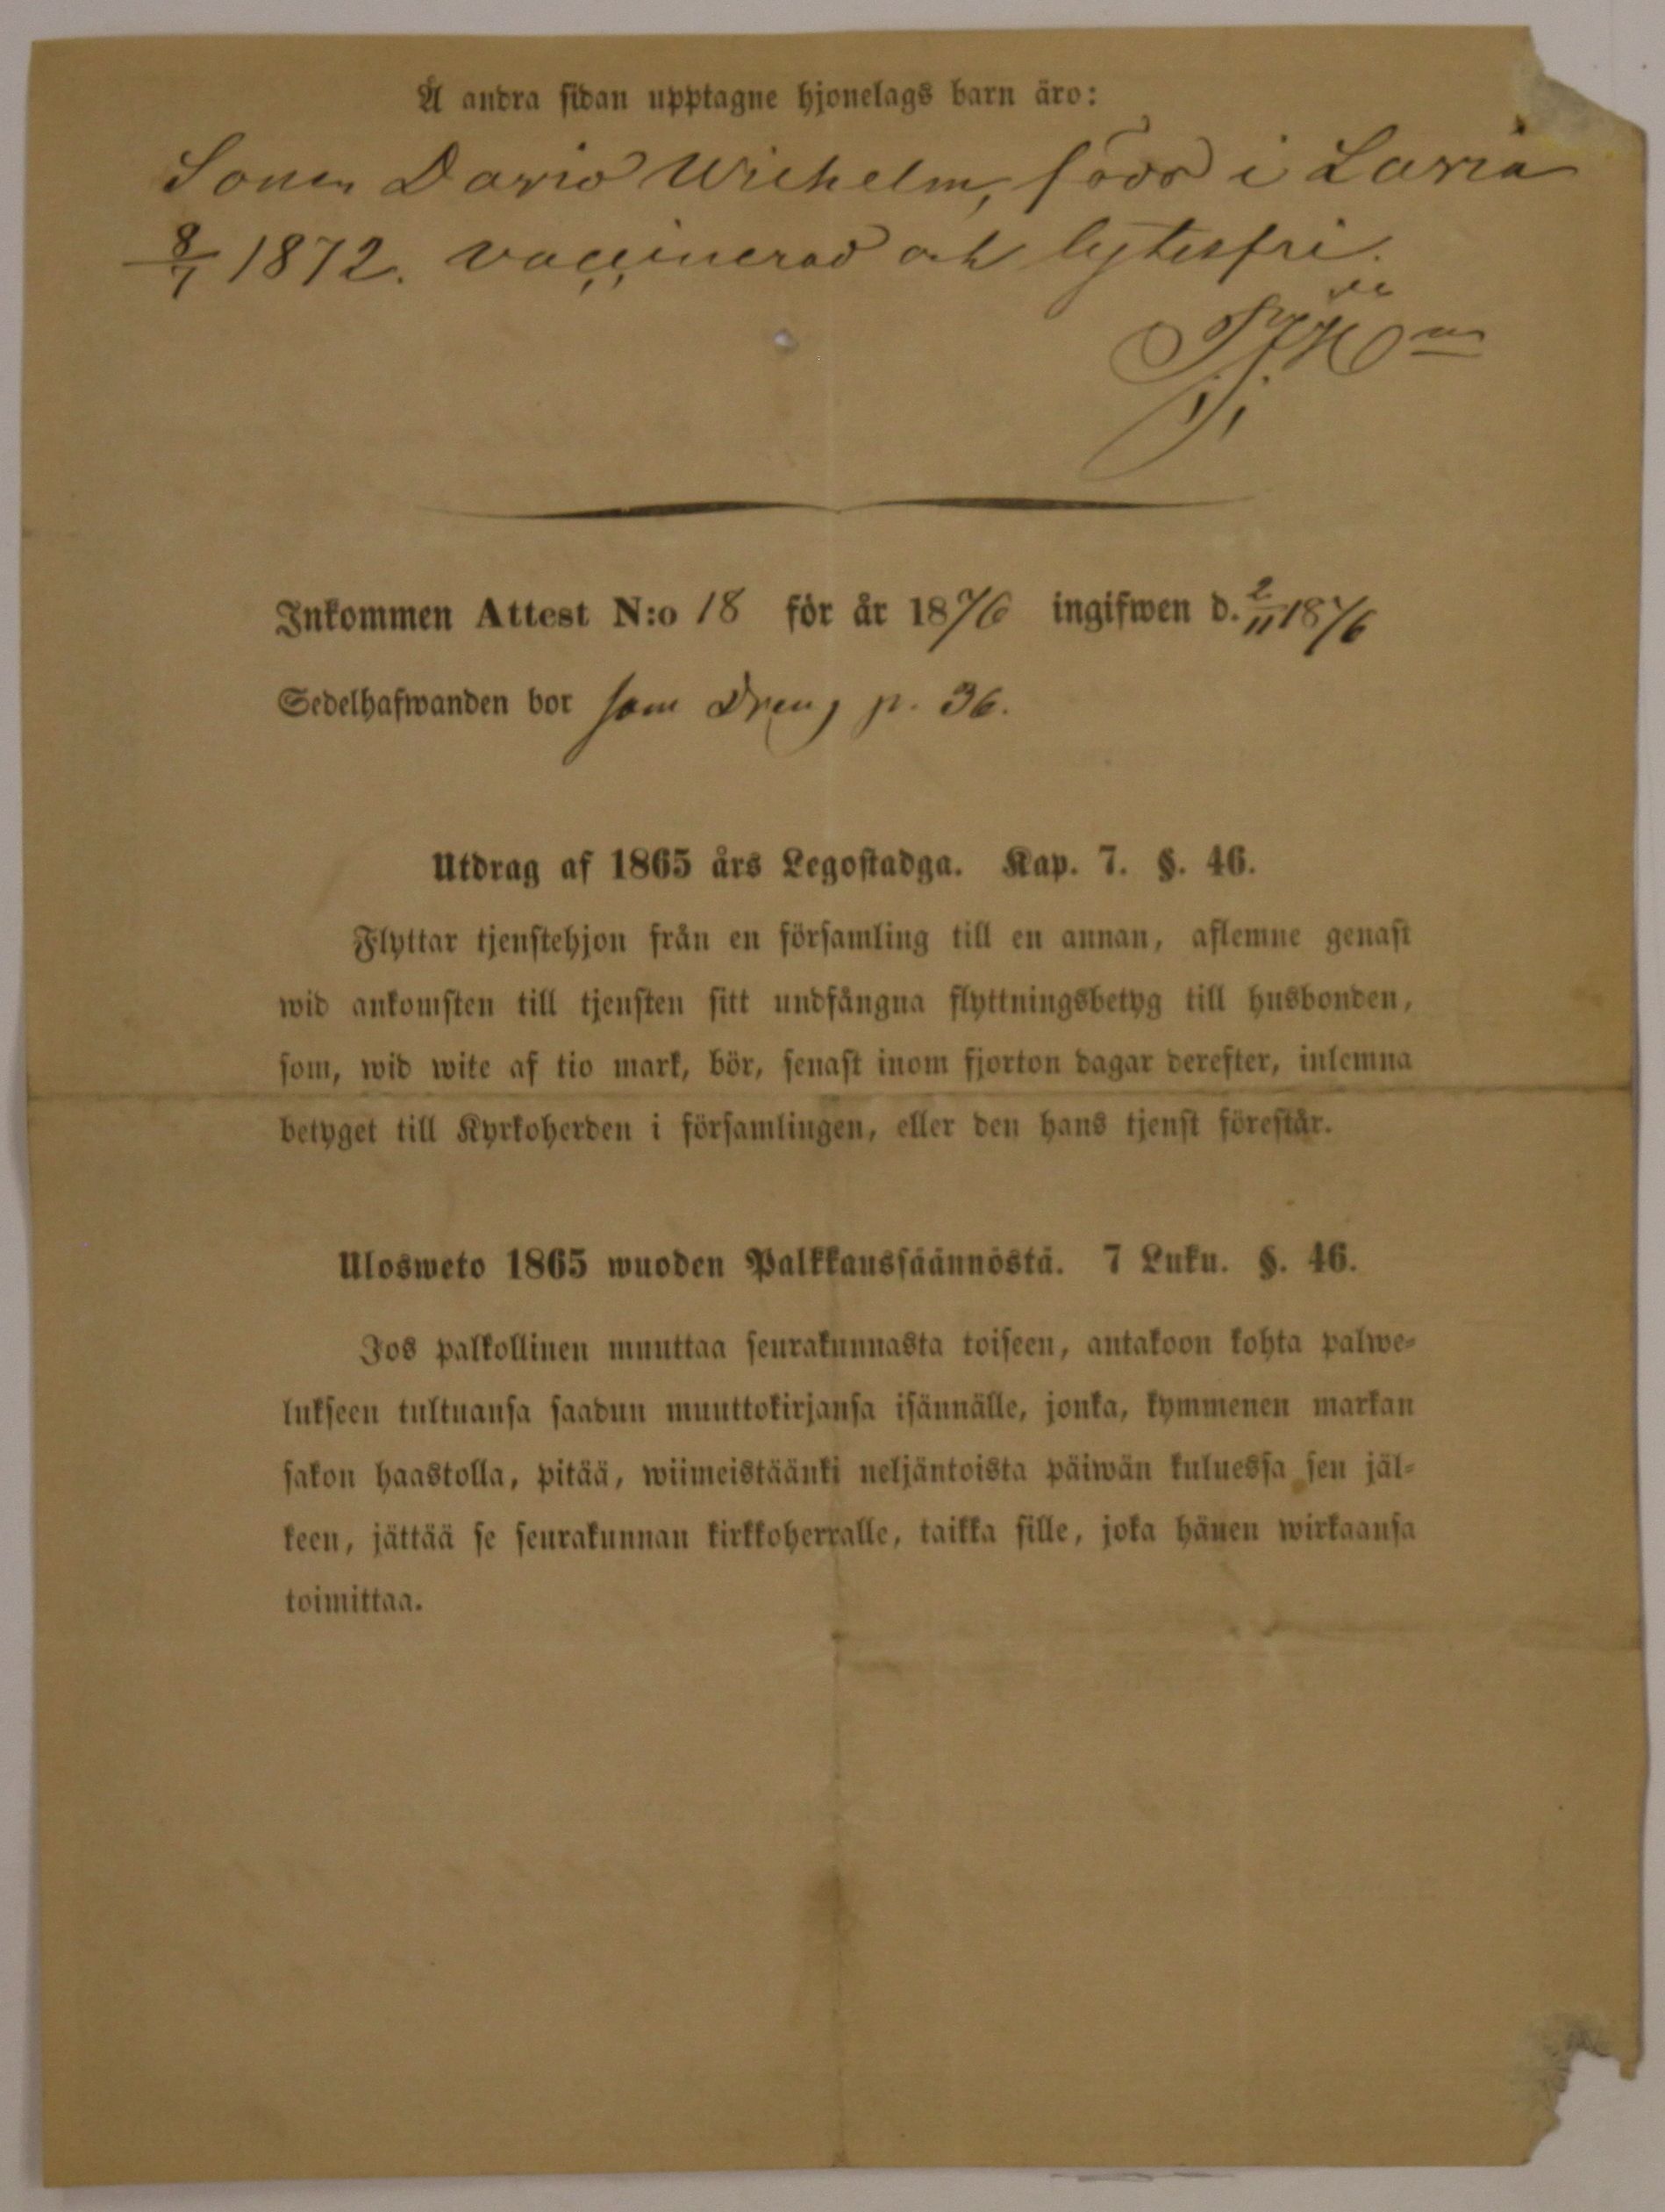 Å andra sidan upptagne hjonelags barn äro:
Sonen David Wilhelm, född i Lavia
8/7 1872. vaccinerad och lytesfri.
Inkommen Attest N:o 18 för år 1876 ingifwen d. 2/11 1876
Sedelhafwanden bor som Dreng p. 36.
Utdrag af 1865 års Legostadga. Kap. 7. §. 46.
Flyttar tjenstehjon från en församling till en annan, aflemne genast
wid ankomsten till tjensten sitt undfångna flyttningsbetyg till husbonden,
som, wid wite af tio mark, bör, senast inom fjorton dagar derefter, inlemna
betyget till Kyrkoherden i församlingen, eller den hans tjenst förestår.
Ulosweto 1865 wuoden Palkkaussäännöstä. 7 Luku. §. 46.
Jos palkollinen muuttaa seurakunnasta toiseen, antakoon kohta palwe-
lukseen tultuansa saadun muuttokirjansa isännälle, jonka, kymmenen markan
sakon haastolla, pitää, wiimeistäänki neljäntoista päiwän kuluessa sen jäl-
keen, jättää se seurakunnan kirkkoherralle, taikka sille, joka hänen wirkaansa
toimittaa.